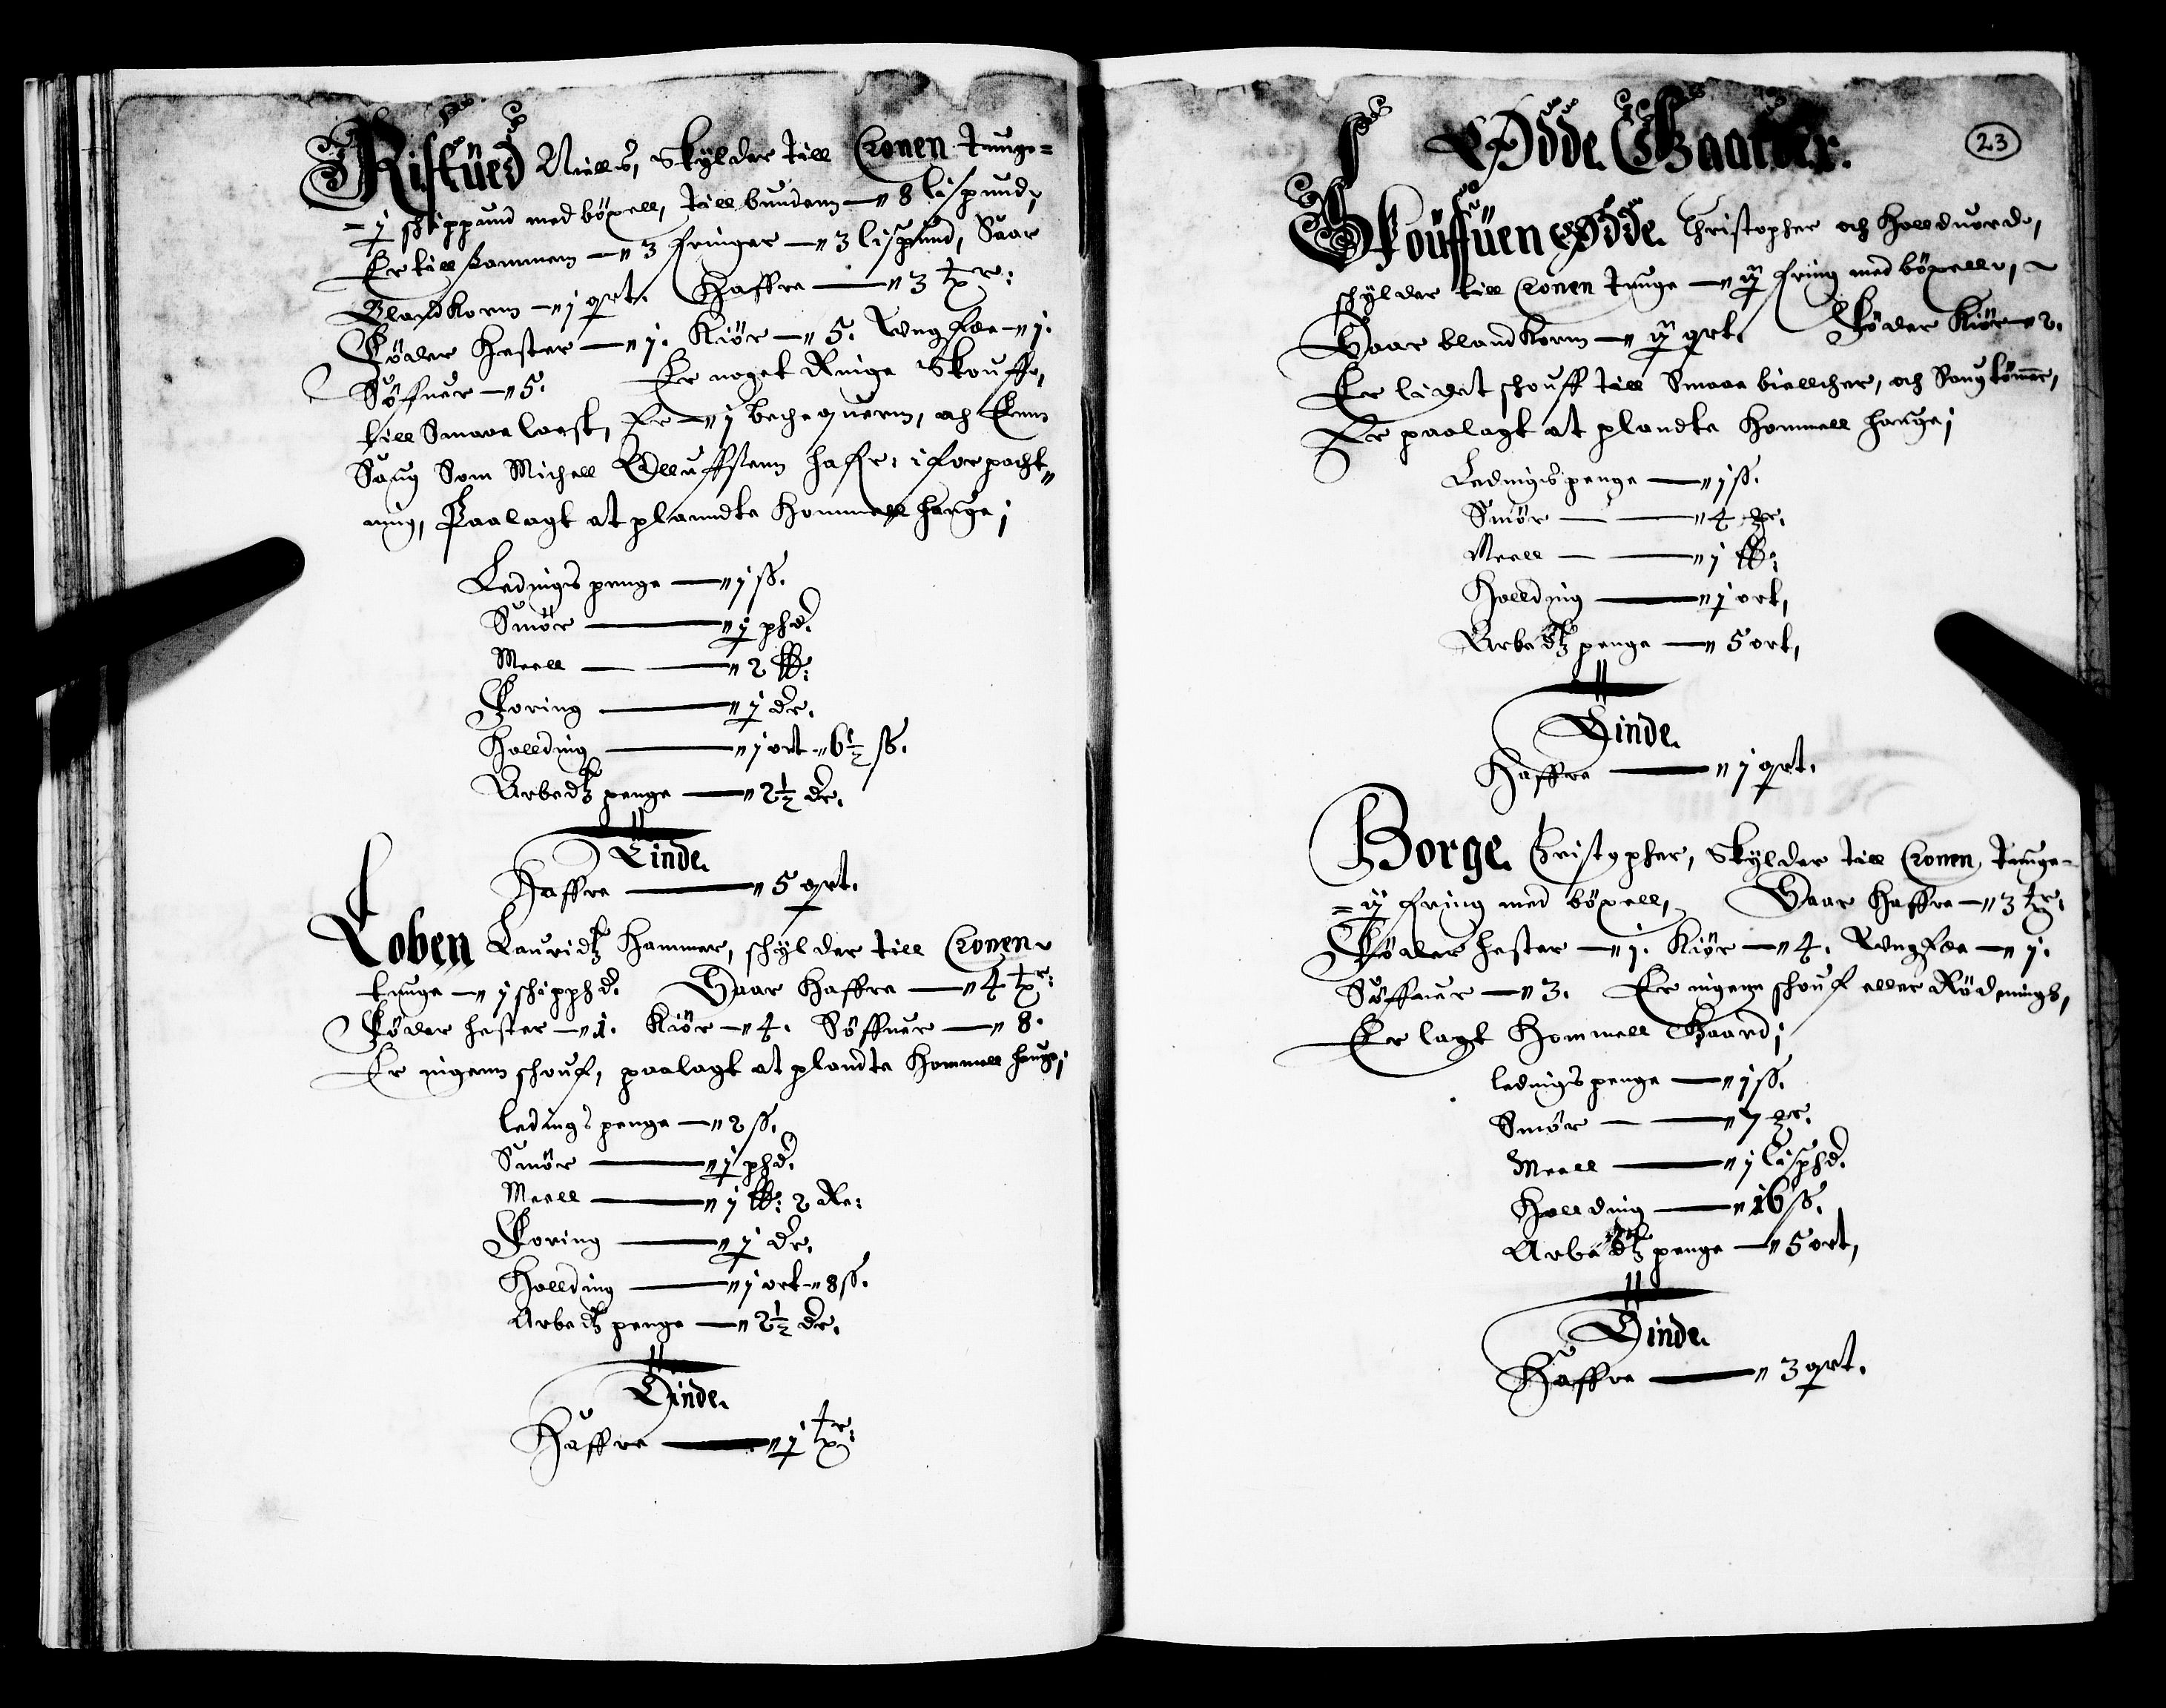 Ristued Niells, Skylder till Cronen tunge=
= ½ schippund med böxell, till bunden — 8 lispund,
Er till sammen — 3 fringer — 3 lispund, Saar
Blandkorn — 1 qrt. Haffre — 3 tr:
Föder Hester — 1. Kiör — 5. Ungfee — 1.
Söffuer — 5. Er noget Ringe Skouff,
till Smaae laest, Er — 1 beche quern, och Enn
Saug Som Michell Olluffsenn hafr: i forpacht
ning, Paalagt at planndte Hommell hauge;
Ledings penge — 1 ß.
Smör — ½ phd.
Meell — 2 ℔:
Foring — ½ dr.
Hollding — 1 ort — 6½ ß.
Arbedtz penge — 2½ dr.
Tinde.
Haffre — 5 qrt.
Loben Lauridtz Hammer, schylder till Cronen
tunge — 1 schipphd. Saar Haffre — 4 tr:
Föder hester — 1. Kiör — 4. Söffuer — 8.
Er ingenn schouf, paalagt at plandte Hommell hauge;
ledings penge — 2 ß.
Smör — ½ phd.
Meell — 1 ℔: 2 Re:
Foring — ½ dr.
Hollding — 1 ort — 8 ß.
Arbedtz penge — 2½ dr.
Tinde.
Haffre — ½ tr:
23
Odde Gaarder.
Skouffuen Odde. Christopher och Holleduord,
schylder till Cronen tunge — ij fring med böxell,
Saar blandkorn — ij qrt. Föder Kiör — 2.
Er lidet schouff till Smaae biellcher, och Saugtömer,
Er paalagt at plandte Hommell hauge;
Ledings penge — 1 ß.
Smör — 4 mr.
Meell — 1 ℔:
Hollding — 1 ort,
Arbedtz penge — 5 ort,
Tinde.
Haffre — 1 qrt.
Borge. Christopher, Skylder till Cronen, tunge
= ij fring med böxell, Saar Haffre — 3 tr:
Föder hester — 1. Kiör — 4. Ungfee — 1.
Söffuer — 3. Er ingenn schouf eller Rödnings,
Er lagt Hommell Gaard;
ledings penge — 1 ß.
Smör — 7 mr.
Meell — 1 lisphd.
Hollding — 16 ß.
Arbedtz penge — 5 ort,
Tinde.
Haffre — 3 qrt.